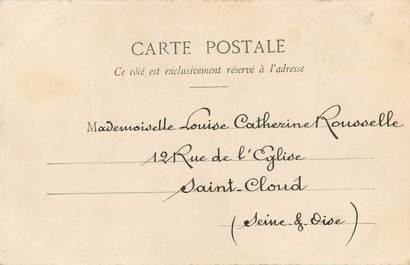 CARTE POSTALE
Ce côté est exclusivement réservé à l'adresse
Mademoiselle Louise Catherine Rousselle
12 Rue de l'Eglise
Saint-Cloud
(Seine & Oise)